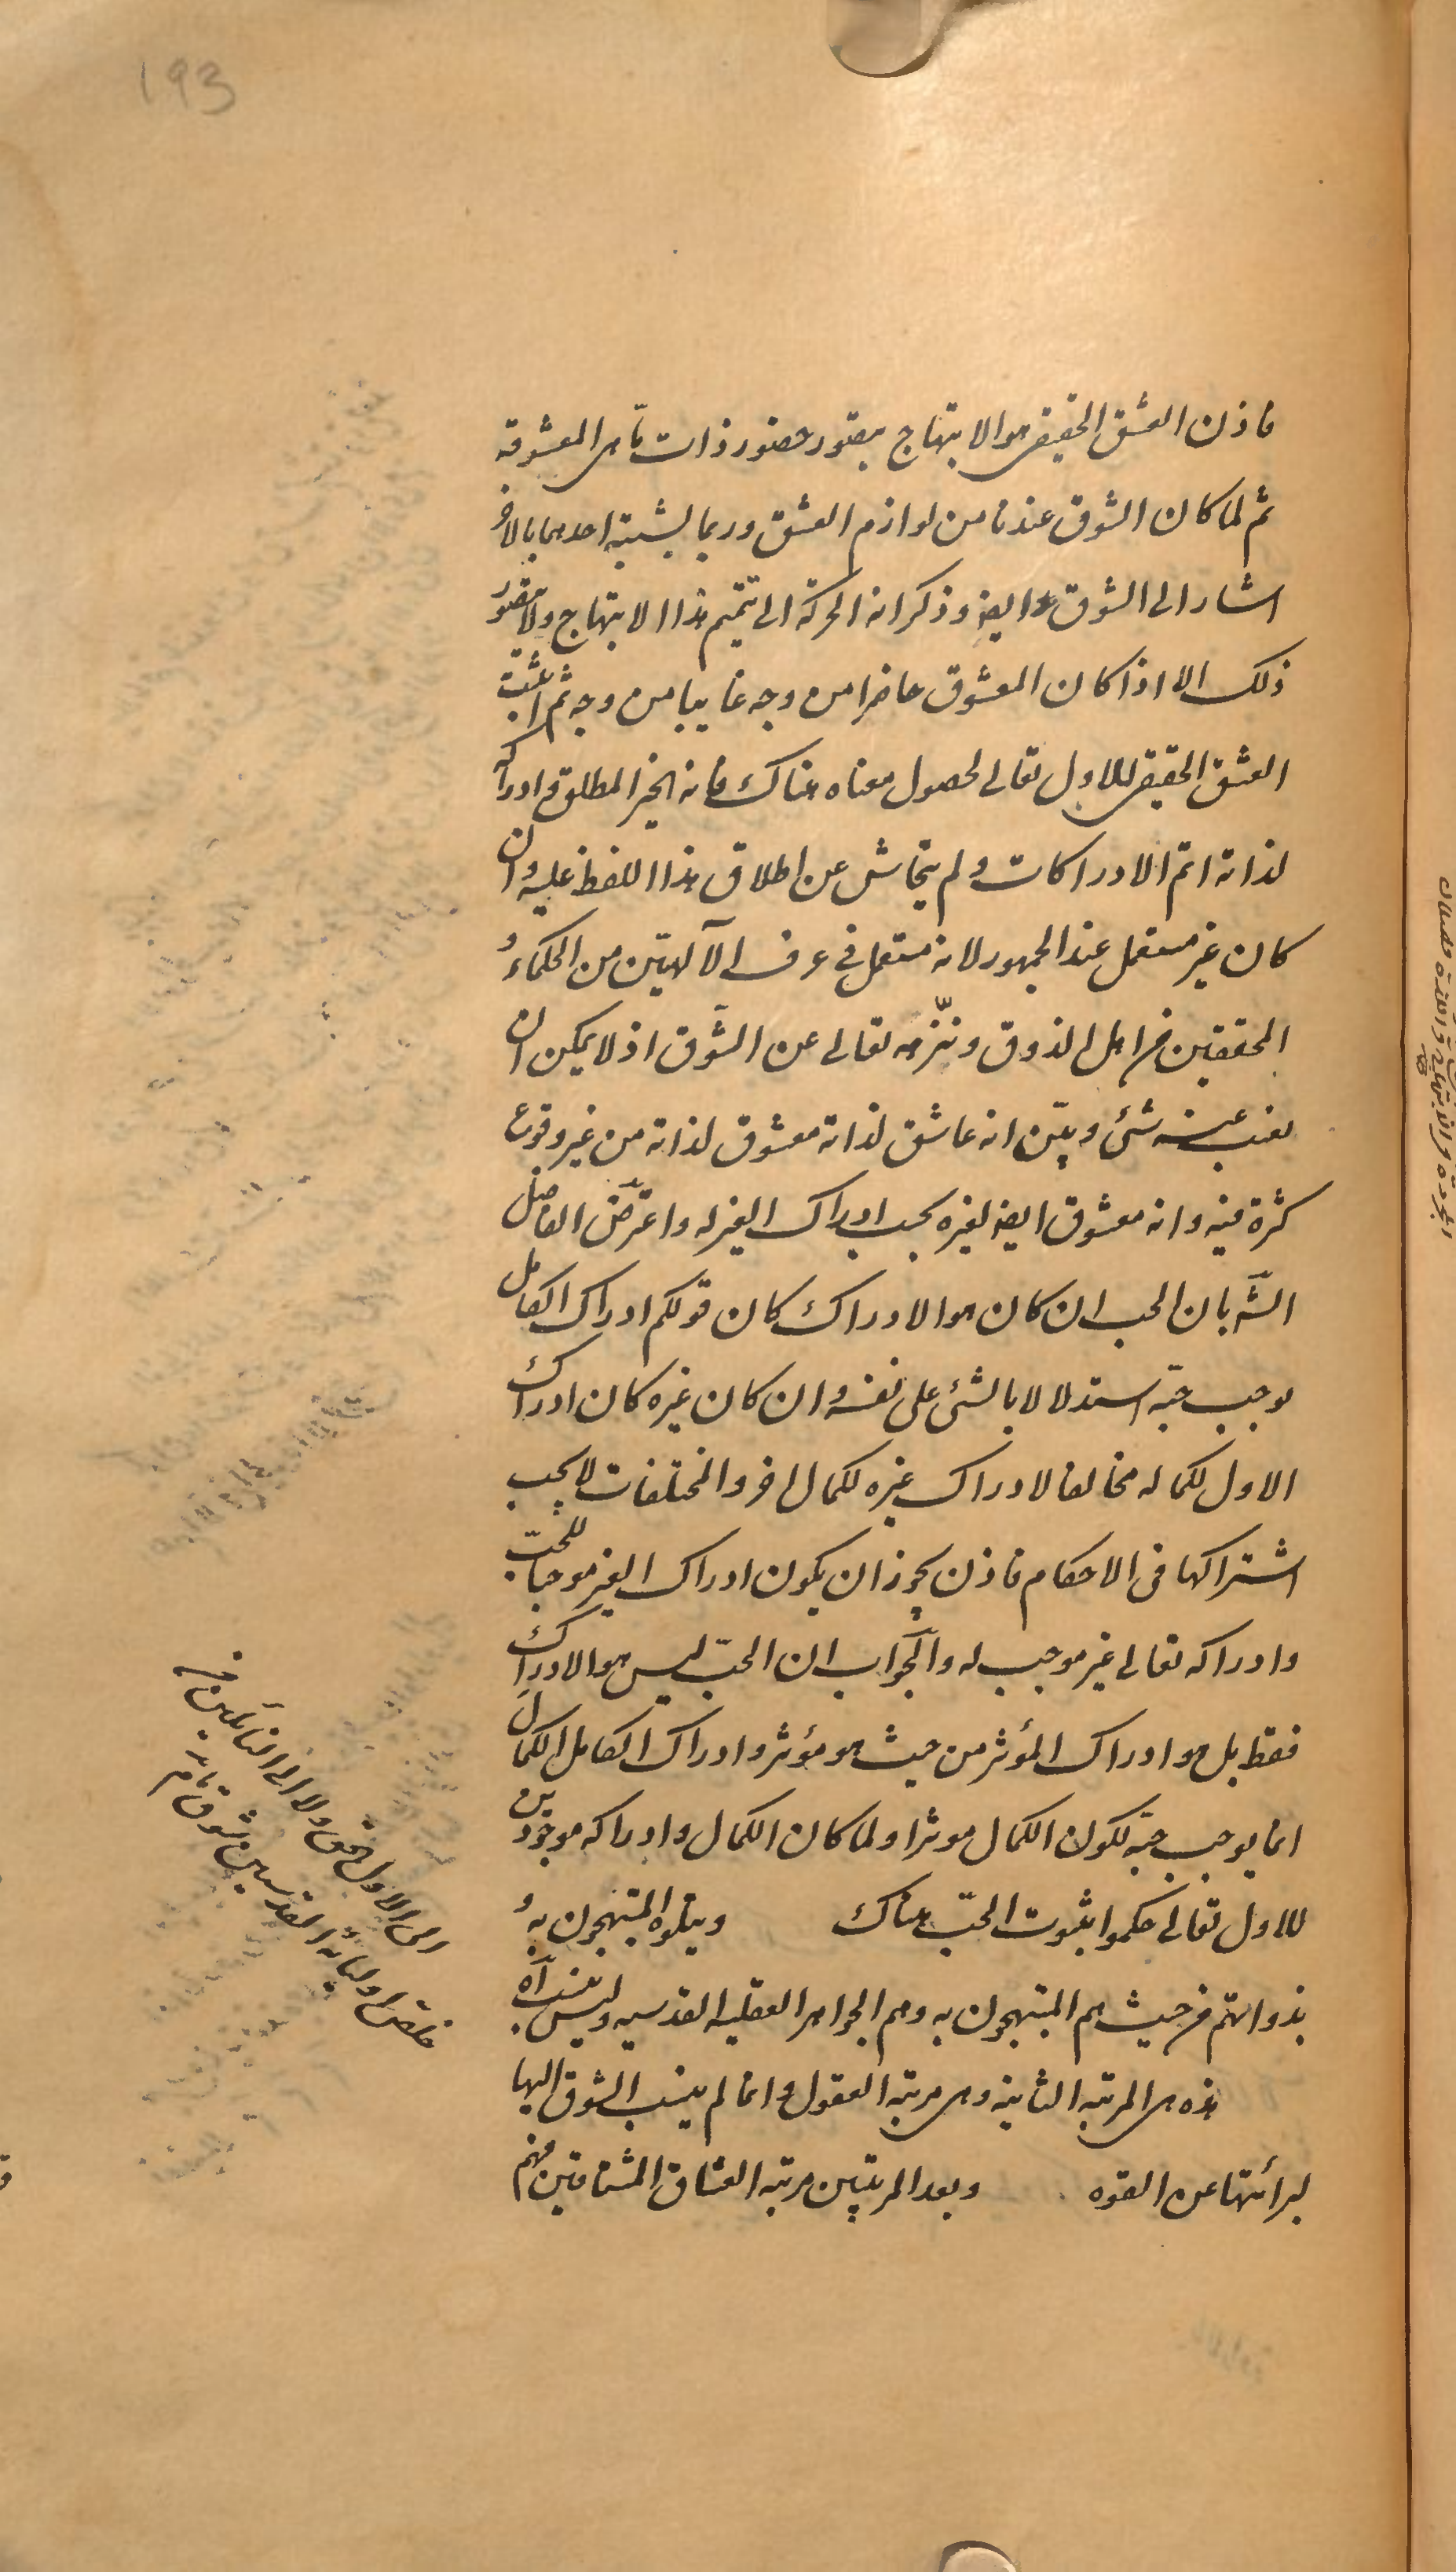 193
فاذن العشق الحقيقى هو الابتهاج بتصور حضور ذات ما هى المعشوقة
ثم لما كان الشوق عندنا من لوازم العشق وربما يشتبه احدهما بالاخر
اشار الى الشوق ايضا وذكر انه الحركة الى تتميم هذا الابتهاج ولا يتصور
ذلك الا اذا كان المعشوق حاضرا من وجه غايبا من وجه ثم اثبت
العشق الحقيقى للاول تعالى لحصول معناه هناك فانه الخير المطلق وادراكه
لذاته اتم الادراكات ولم يتحاش عن اطلاق هذا اللفظ عليه وان
كان غير مستعمل عند الجمهور لانه مستعمل فى عرف الآلهيين من الحكماء و
المحققين من اهل الذوق ونزهه تعالى عن الشوق اذ لا يمكن ان
يغيب عنه شئ وبين انه عاشق لذاته معشوق لذاته من غير وقوع
كثرة فيه وانه معشوق ايضا لغيره بحسب ادراك الغير له واعترض الفاضل
الشه بان الحب ان كان هو الادراك كان قولكم ادراك الكامل
يوجب حبه استدلالا بالشئ على نفسه وان كان غيره كان ادراك
الاول لكماله مخالفا لادراك غيره لكمال اخر والمختلفات لا يجب
اشتراكها فى الاحكام فاذن يجوز ان يكون ادراك الغير موجبا للحب
وادراكه تعالى غير موجب له والجواب ان الحب ليس هو الادراك
فقط بل هو ادراك المؤثر من حيث هو مؤثر وادراك الكامل الكمال
انما يوجب حبه لكون الكمال موثرا ولما كان الكمال وادراكه موجودين
للاول تعالى حكموا بثبوت الحب هناك ويتلوه المبتهجون به و
بذواتهم من حيث هم المبتهجون به وهم الجواهر العقليه القدسيه وليس ينسب آه
هذه هى المرتبه الثانيه وهى مرتبه العقول وانما لم ينسب الشوق اليها
لبرائتها عن القوه وبعد المرتبتين مرتبه العشاق المشتاقين فهم
الى الاول الحق ولا الى التالين من
خلص اوليائه القدسيين شوق